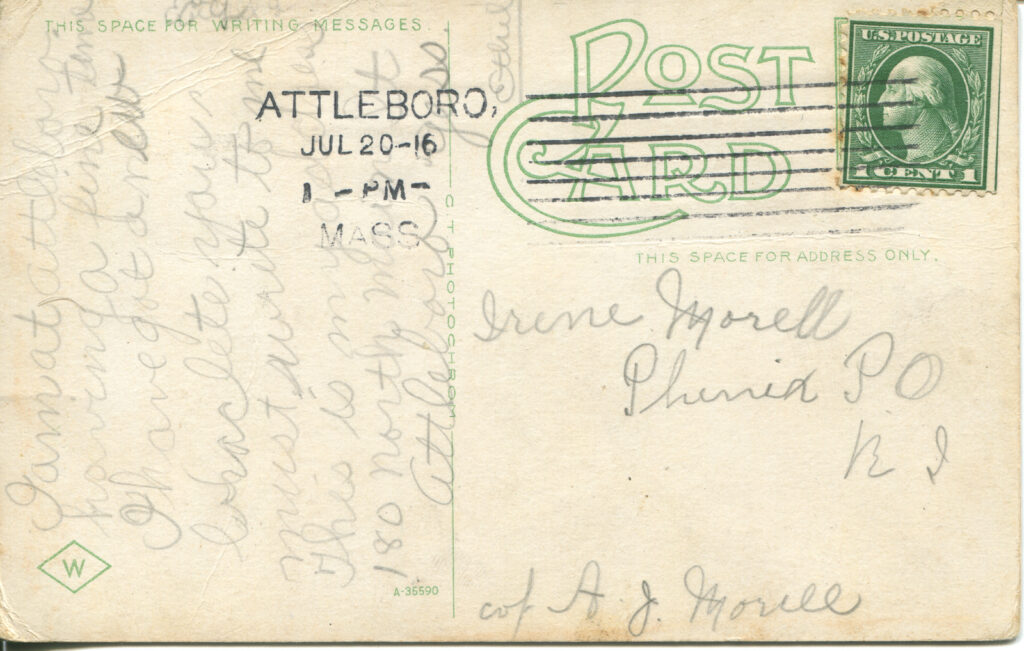 THIS SPACE FOR WRITING MESSAGES
I am at attleboro
having a fine time
I have got a new
braclete yours
must write to me
This is my
180 north Main st
Attleboro Mass
Ethel
ATTLEBORO,
JUL 20-16
1 - PM -
MASS
C T PHOTOCHROM
W
A-35590
POST
CARD
U.S. POSTAGE
1 CENT 1
THIS SPACE FOR ADDRESS ONLY.
Irene Morell
Phenix P O
R I
c/o A. J. Morell